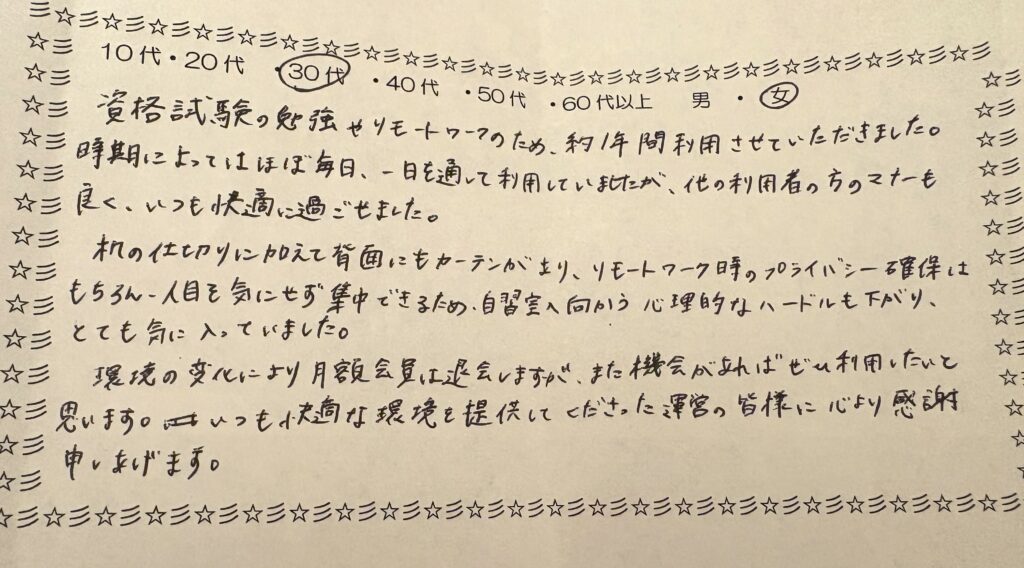 10代・20代・30代・40代・50代・60代以上 男・女
資格試験の勉強やリモートワークのため、約1年間利用させていただきました。
時期によってはほぼ毎日、一日を通して利用していましたが、他の利用者の方のマナーも
良く、いつも快適に過ごせました。
机の仕切りに加えて背面にもカーテンがあり、リモートワーク時のプライバシー確保は
もちろん、人目を気にせず集中できるため、自習室へ向かう心理的なハードルも下がり、
とても気に入っていました。
環境の変化により月額会員は退会しますが、また機会があればぜひ利用したいと
思います。いつも快適な環境を提供してくださった運営の皆様に心より感謝
申しあげます。